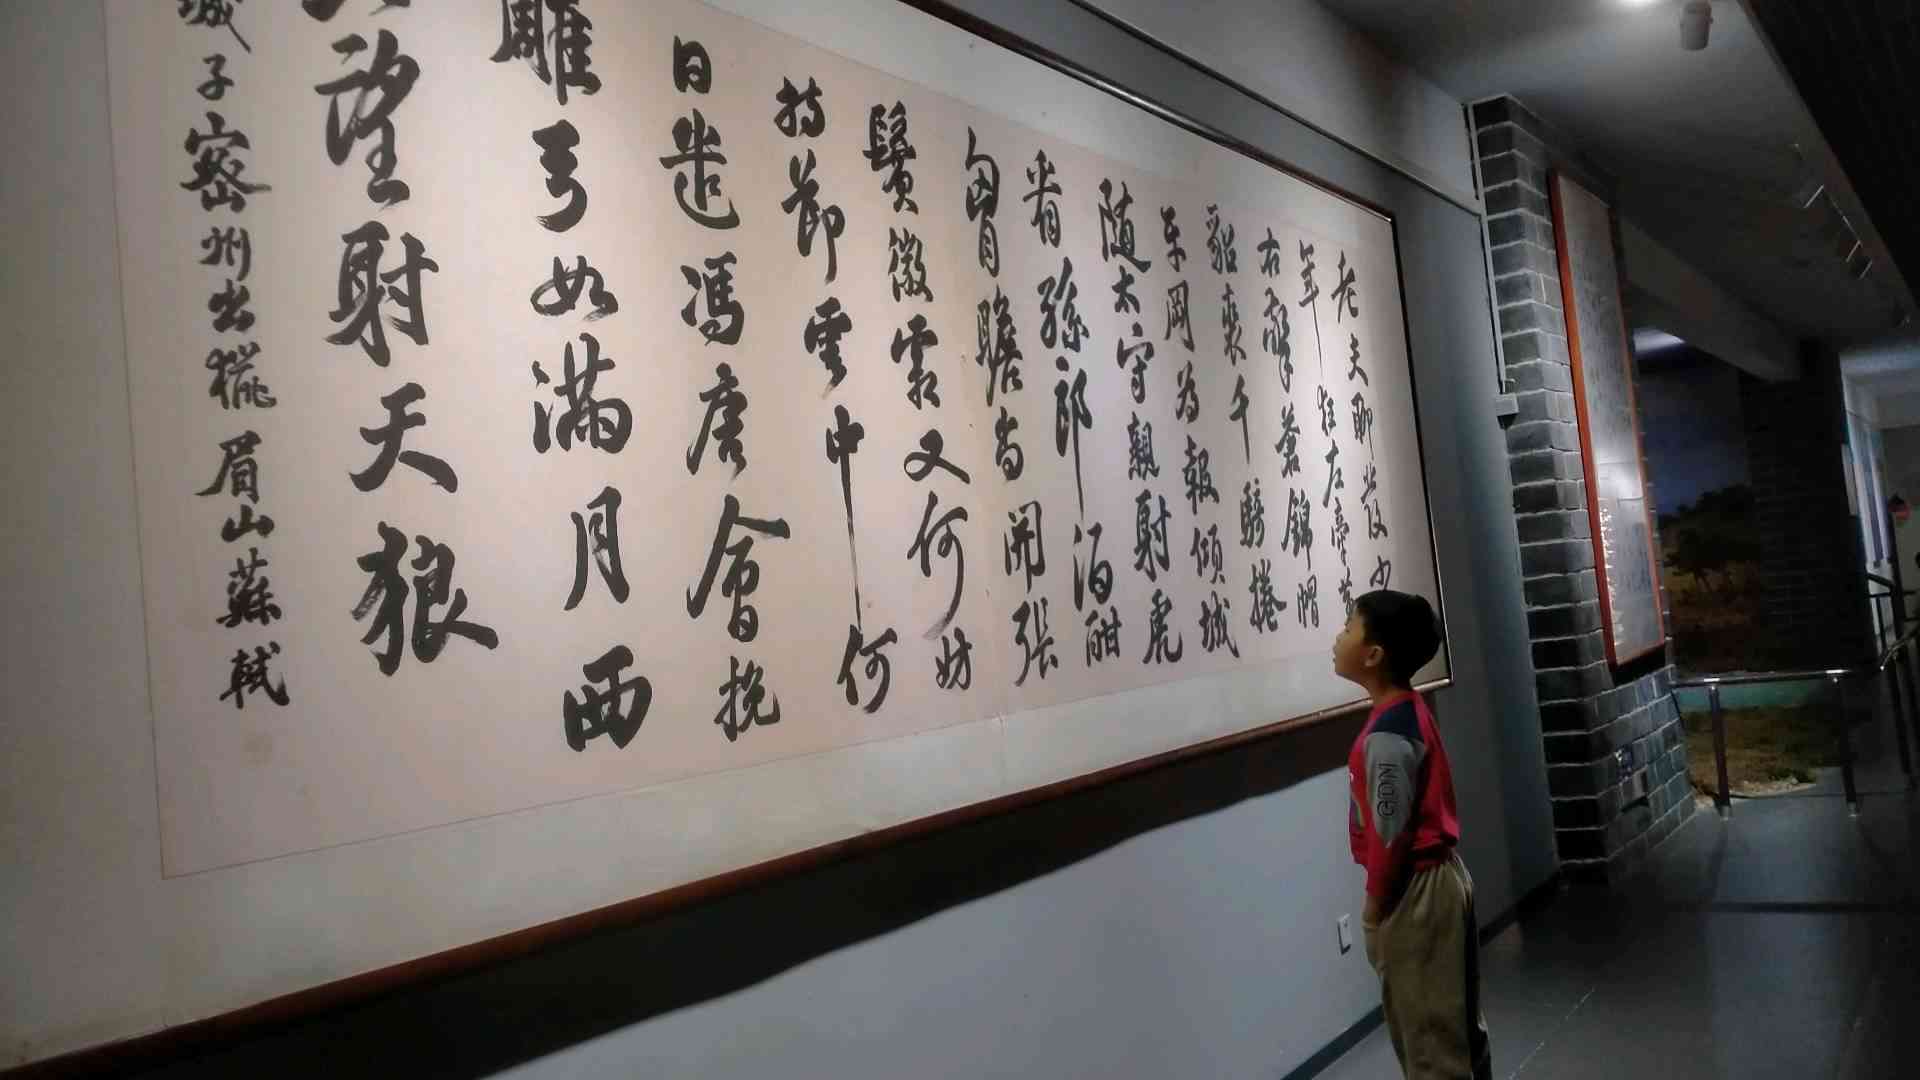 老夫聊發少
年狂左牽黄
右擎蒼錦帽
貂裘千騎捲
平岡為報傾城
随太守親射虎
看孫郎酒酣
胷膽尚開張
鬢微霜又何妨
持節雲中何
日遣馮唐會挽
雕弓如滿月西
望射天狼
城子密州出獵眉山蘇軾
GDN